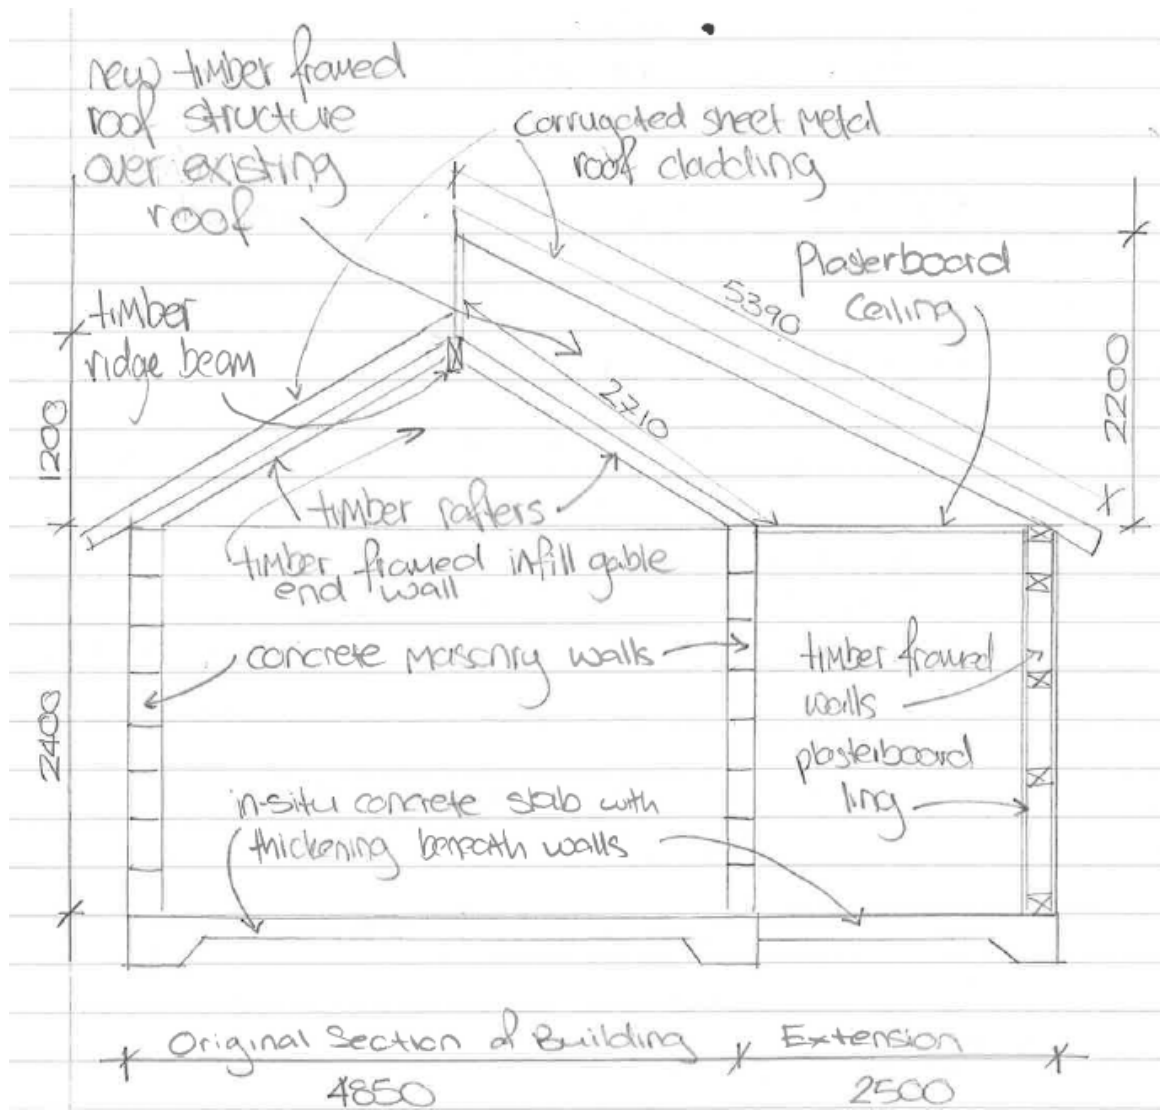 new timber framed
roof structure
over existing
roof
corrugated sheet metal
roof cladding
Plasterboard
ceiling
timber
ridge beam
5390
2710
1200
2200
timber rafters
timber framed infill gable
end wall
concrete masonry walls
timber framed
walls
2400
plasterboard
ling
in-situ concrete slab with
thickening beneath walls
Original Section of Building
Extension
4850
2500